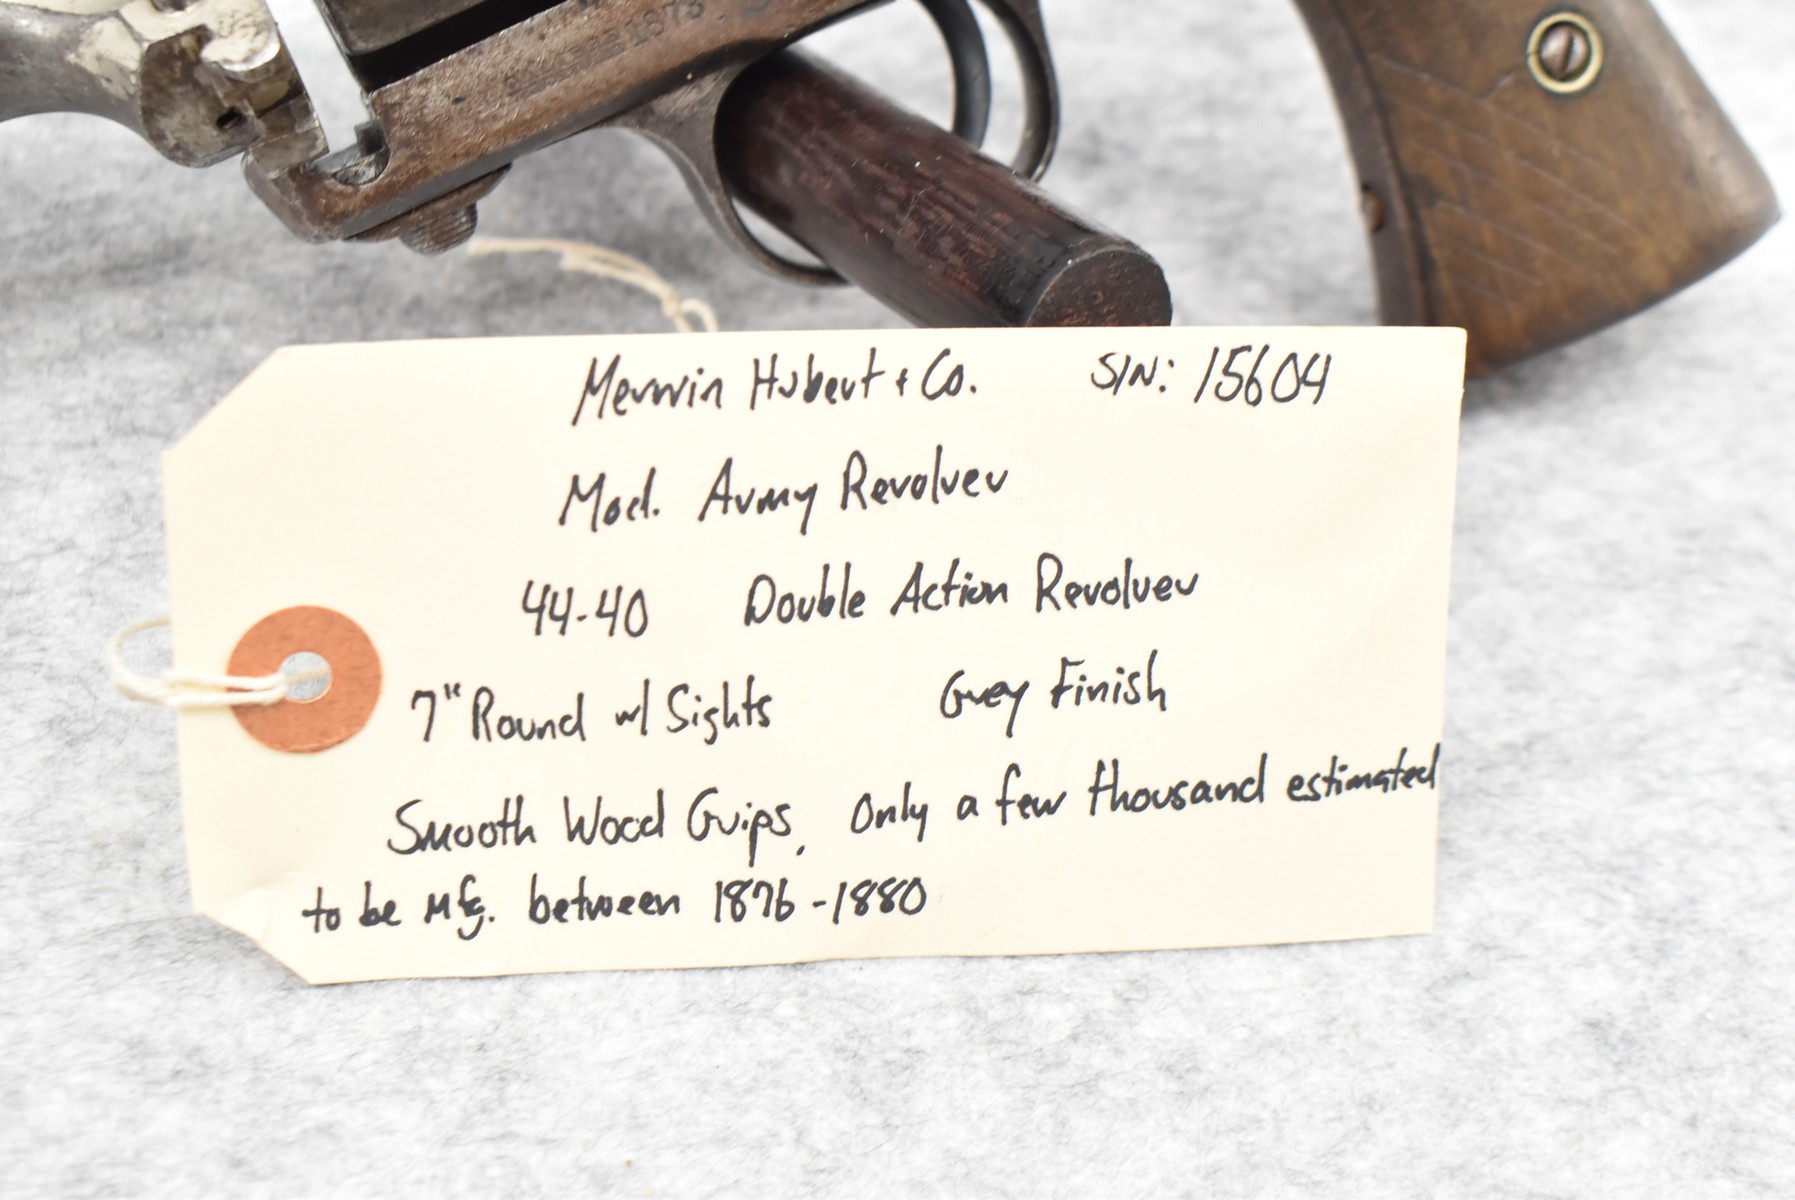 1873.
Merwin Hubert + Co. S/N: 15604
Mod. Army Revolver
44-40 Double Action Revolver
7" Round w/ Sights Grey Finish
Smooth Wood Grips, Only a few thousand estimated
to be mfg. between 1876-1880